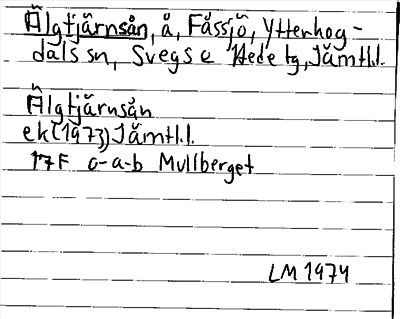 Älgtjärnsån, å, Fåssjö, Ytterhog-
dals sn, Svegs o Hede tg, Jämtl.l.
Älgtjärnsån
ek(1973) Jämtl.l.
17F c-a-b Mullberget
LM 1974